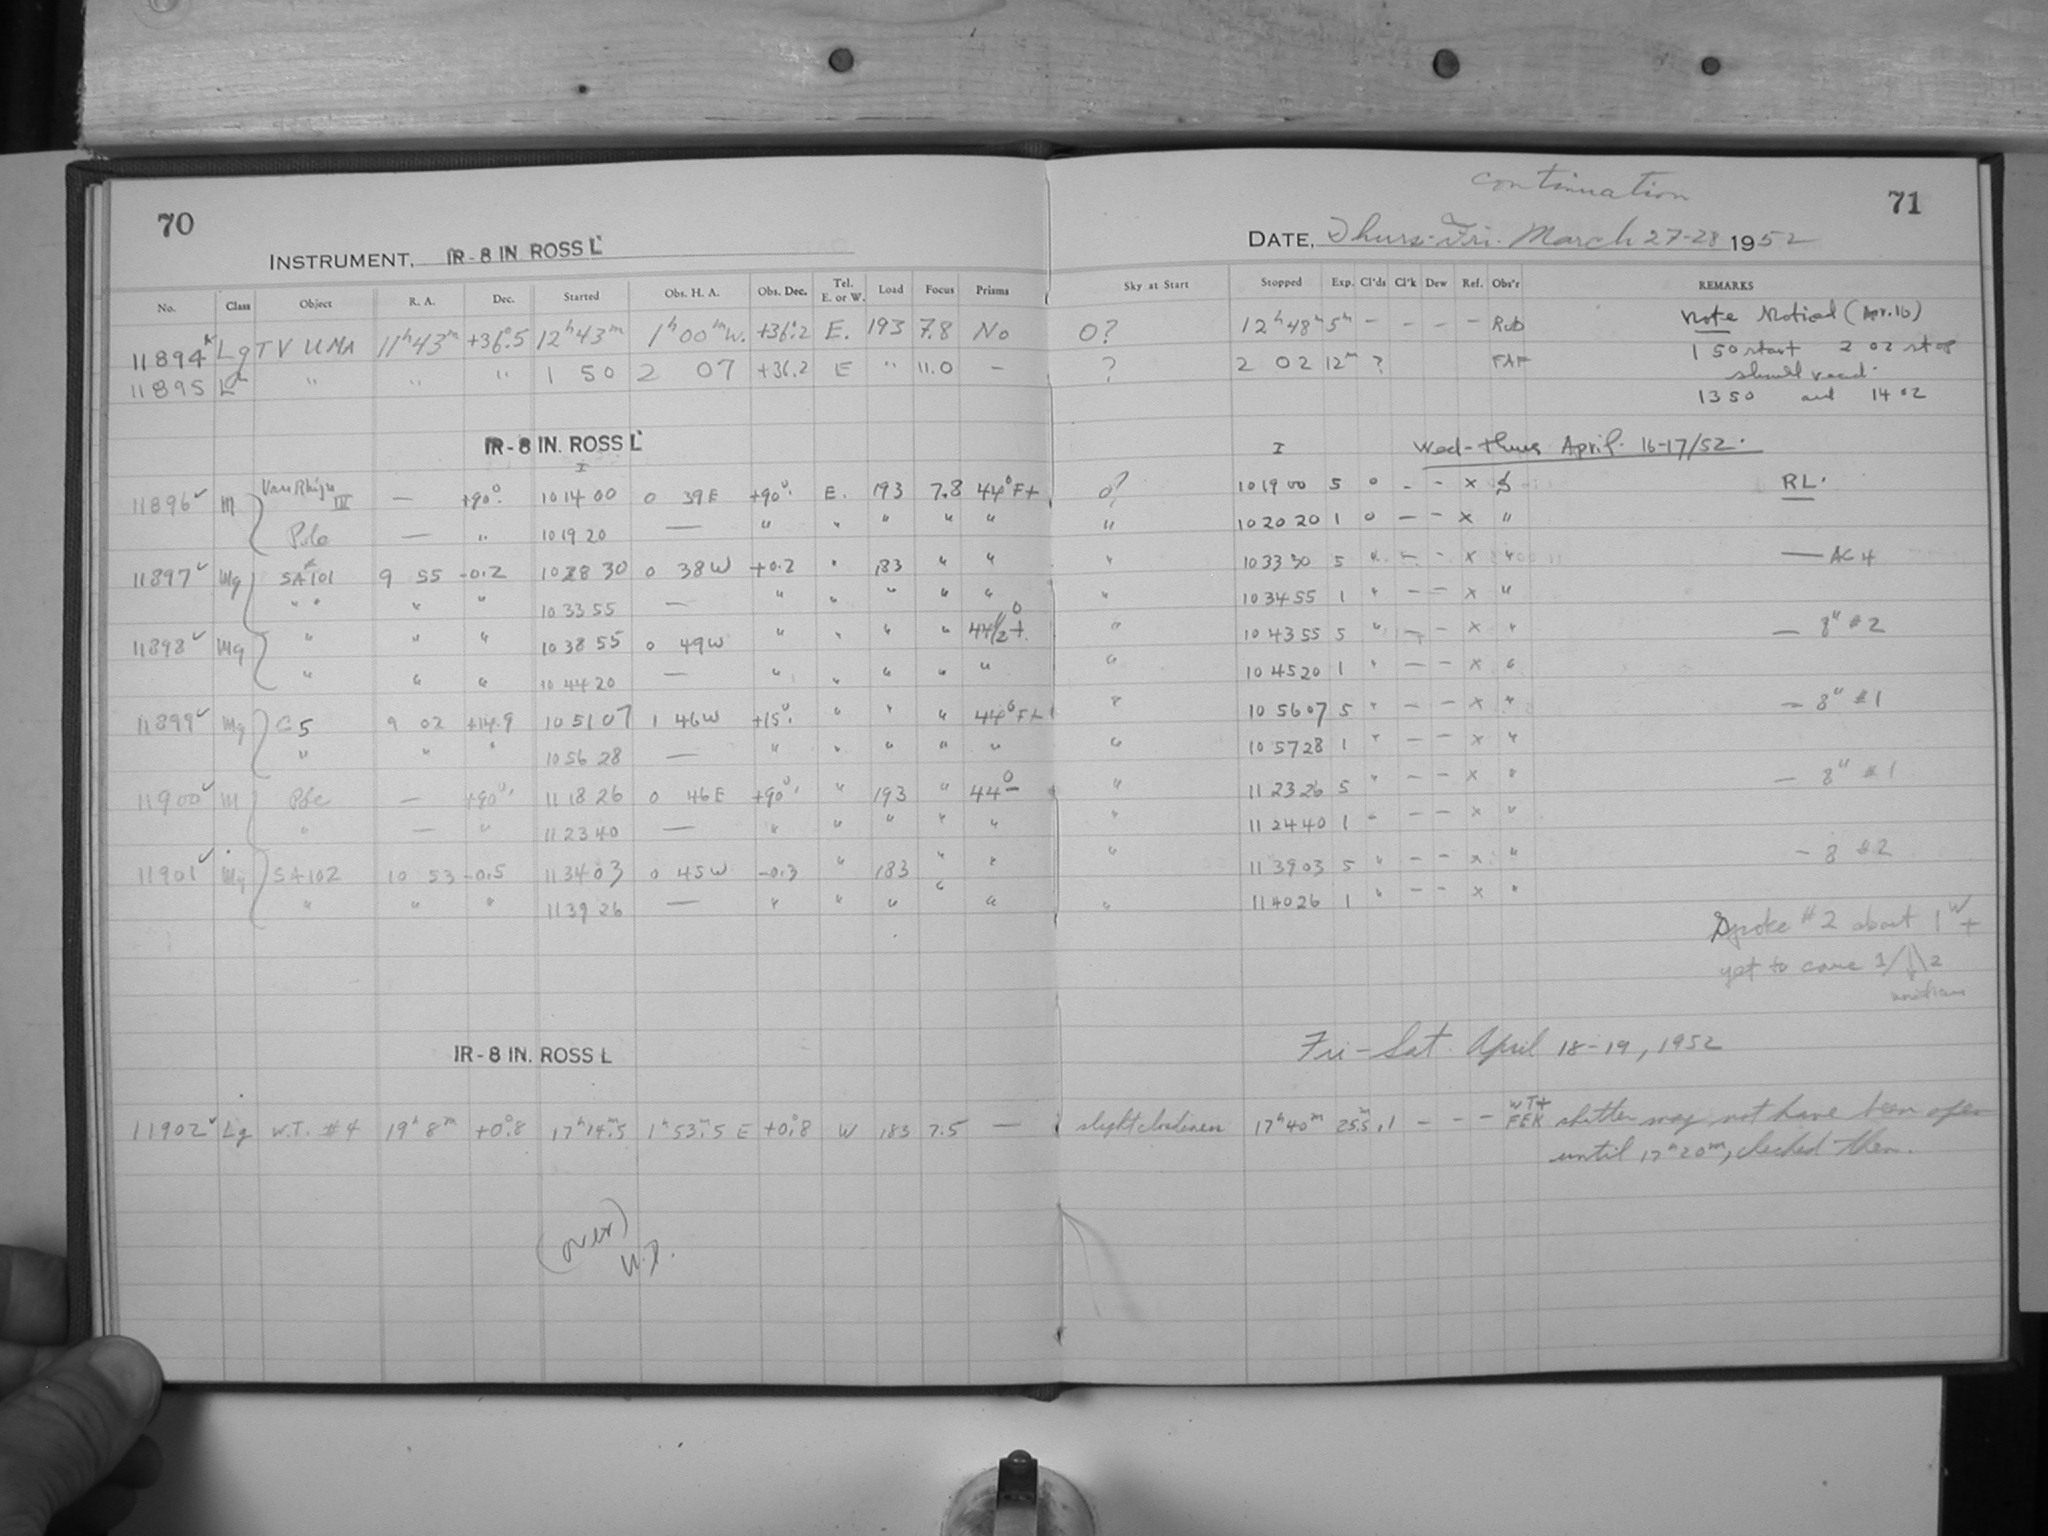 continuation
70
71
INSTRUMENT, IR - 8 IN ROSS L
DATE, Thurs-Fri. March 27-28 1952
No. Class Object R. A. Dec. Started Obs. H. A. Obs. Dec. Tel. E. or W. Load Focus Prisms Sky at Start Stopped Exp. Cl'ds Cl'k Dew Ref. Obs'r REMARKS
11894 Lg TV UMA 11h43m +36°.5 12h43m 1h00mW. +36°.2 E. 193 7.8 No 0? 12h48m 5m - - - - Rub Note Noticed (Apr. 16)
11895 Lg " " " 1 50 2 07 +36.2 E " 11.0 - ? 2 02 12m ? FAF 1 50 start 2 02 stop
should read
13 50 and 14 02
IR - 8 IN. ROSS L
I I Wed-Thurs April 16-17/52.
11896 ✓ M Van Rhijn III — +90° 10 14 00 0 39E +90° E. 193 7.8 44° F+ 0? 10 19 00 5 0 - - x RL.
Pole — " 10 19 20 — " " " " " " 10 20 20 1 0 - - x "
11897 ✓ Mg SA 101 9 55 -0.2 10 28 30 0 38W +0.2 " 183 " " " 10 33 30 5 " - - x " — AC 4
" " " " 10 33 55 — " " " " " " 10 34 55 1 " - - x "
11898 ✓ Mg " " " 10 38 55 0 49W " " " " 44½° + " 10 43 55 5 " - - x " — 8" #2
" " " 10 44 20 — " " " " " " 10 45 20 1 " - - x "
11899 ✓ Mg C5 9 02 +14.9 10 51 07 1 46W +15° " " " 44° F+ " 10 56 07 5 " - - x " — 8" #1
" " " 10 56 28 — " " " " " " 10 57 28 1 " - - x "
11900 ✓ M Pole — +90° 11 18 26 0 46E +90° " 193 " 44° - " 11 23 26 5 " - - x " — 8" #1
" — " 11 23 40 — " " " " " " 11 24 40 1 " - - x "
11901 ✓ Mg SA 102 10 53 -0.5 11 34 03 0 45W -0.3 " 183 " " " 11 39 03 5 " - - x " - 8 #2
" " " 11 39 26 — " " " " " " 11 40 26 1 " - - x "
Spoke #2 about 1W +
yet to come 1/ \2
IR - 8 IN. ROSS L
Fri - Sat. April 18-19, 1952
11902 ✓ Lg W.T. #4 19h 8m +0°.8 17h14m.5 1h53m.5 E +0°.8 W 183 7.5 — slight cloudiness 17h40m 25m.5 .1 - - - WT+ FEK shutter may not have been open
until 17h20m, checked then.
(over)
W.T.